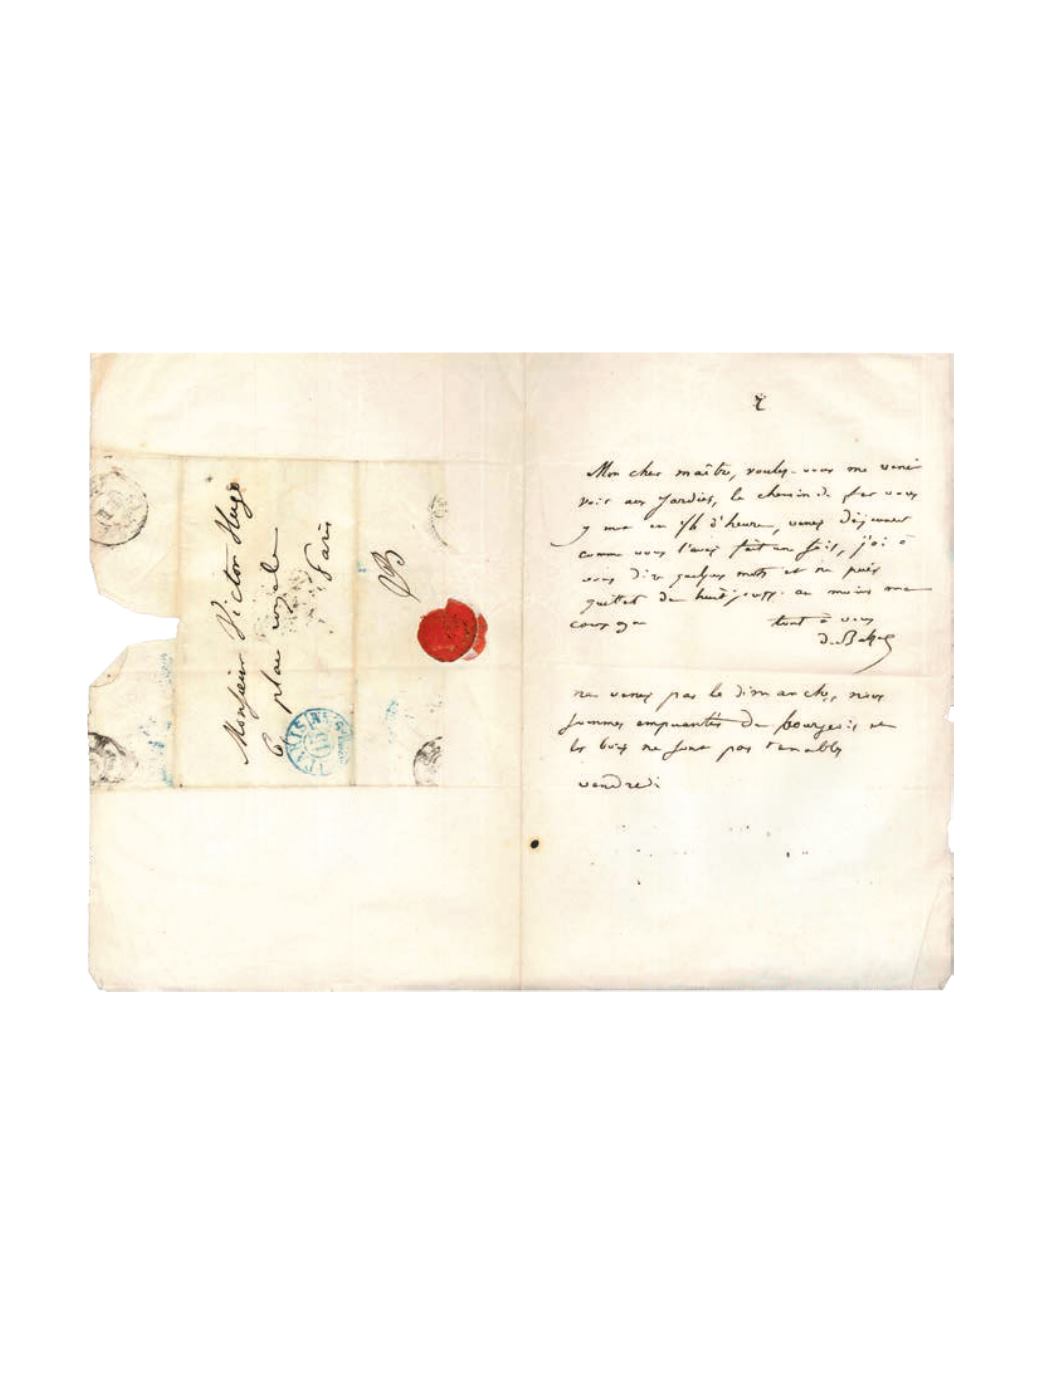 Monsieur Victor Hugo
6 place royale
Paris
PARIS
Mon cher maître, voulez-vous me venir
voir aux Jardies, le chemin de fer vous
y met en 1/4 d'heure, venez déjeuner
comme vous l'avez fait une fois, j'ai à
vous dire quelques mots et ne puis
quitter de huit jours au moins ma
tout à vous
de Balzac
ne venez pas le dimanche, nous
sommes empuantés de bourgeois
les bois ne sont pas tenables
vendredi